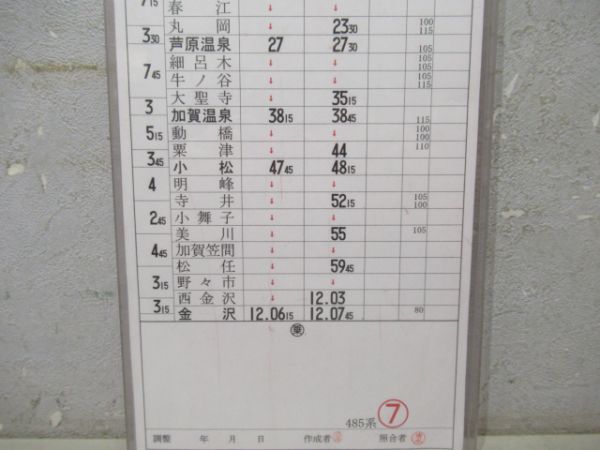 7 15 春江 ↓ ↓
丸岡 ↓ 23 30 100 115
3 30 芦原温泉 27 27 30 105
細呂木 ↓ ↓ 105 105
7 45 牛ノ谷 ↓ ↓ 105 115
大聖寺 ↓ 35 15
3 加賀温泉 38 15 38 45 115
5 15 動橋 ↓ ↓ 100 100
粟津 ↓ 44 110
3 45 小松 47 45 48 15
4 明峰 ↓ ↓
寺井 ↓ 52 15 105 100
2 45 小舞子 ↓ ↓
美川 ↓ 55 105
4 45 加賀笠間 ↓ ↓
松任 ↓ 59 45
3 15 野々市 ↓ ↓
西金沢 ↓ 12.03
3 15 金沢 12.06 15 12.07 45 80
乗
485系 7
調整 年 月 日 作成者 照合者